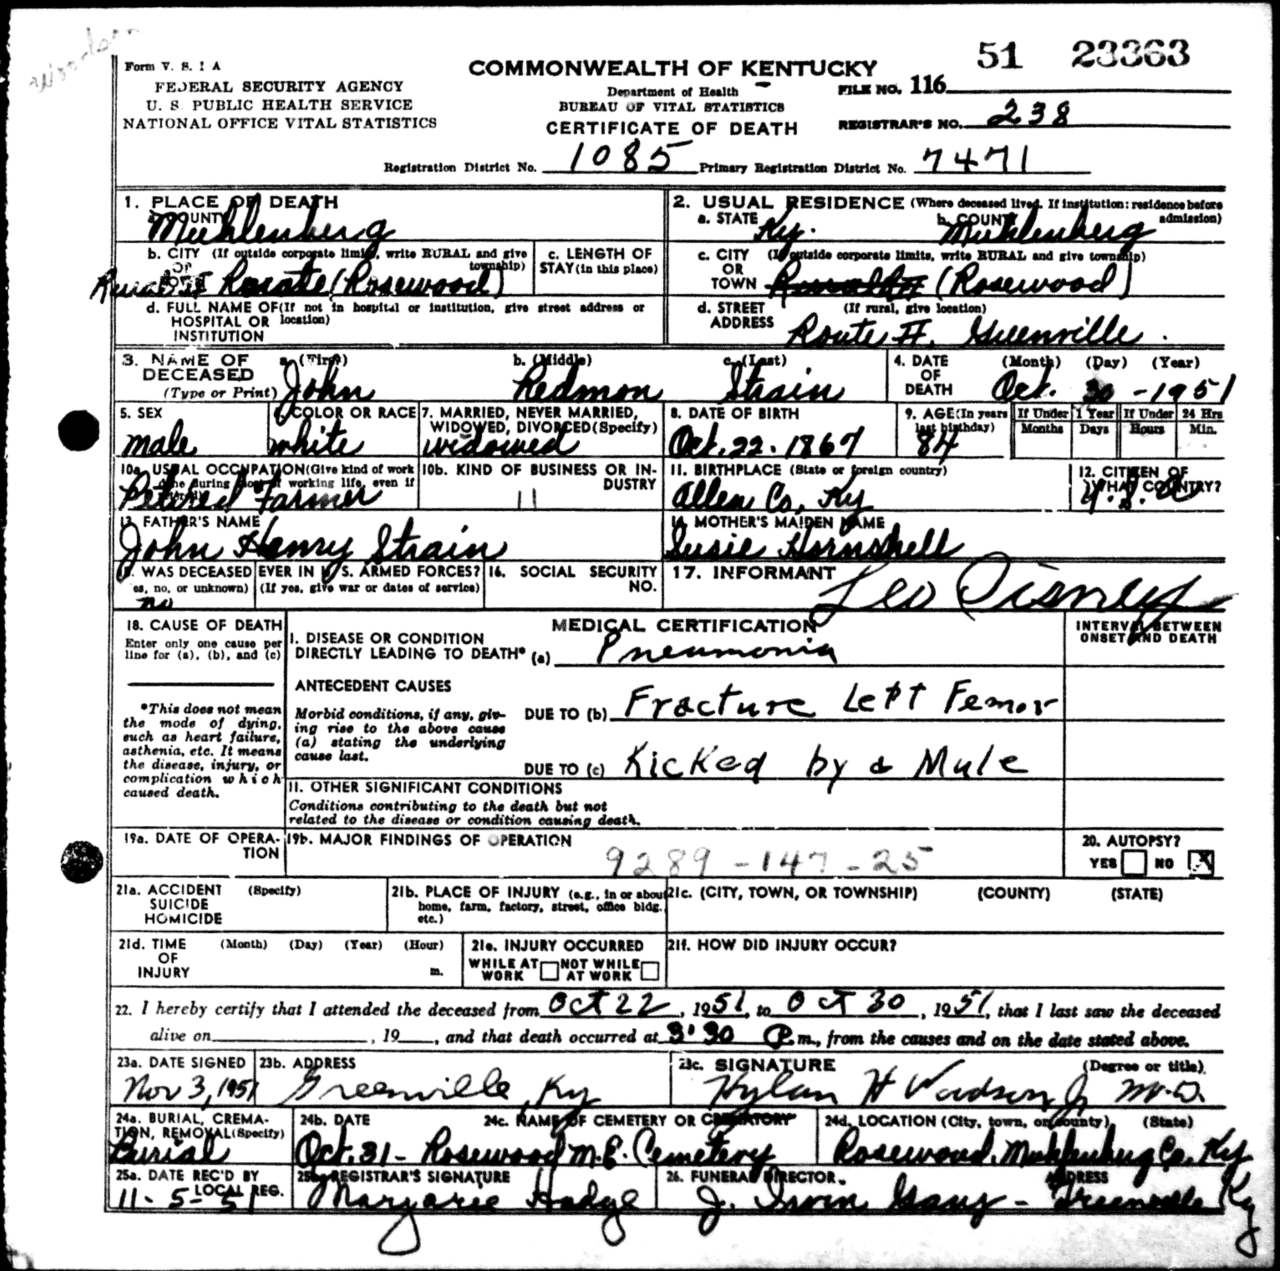 Woodson
51 23363
Form V. S. 1 A
FEDERAL SECURITY AGENCY
U. S. PUBLIC HEALTH SERVICE
NATIONAL OFFICE VITAL STATISTICS
COMMONWEALTH OF KENTUCKY
Department of Health
BUREAU OF VITAL STATISTICS
CERTIFICATE OF DEATH
FILE NO. 116
REGISTRAR'S NO. 238
Registration District No. 1085 Primary Registration District No. 7471
1. PLACE OF DEATH
a. COUNTY
Muhlenberg
2. USUAL RESIDENCE (Where deceased lived. If institution: residence before admission)
a. STATE Ky. b. COUNTY Muhlenberg
b. CITY (If outside corporate limits, write RURAL and give township)
OR
TOWN
Rural (Rosewood)
c. LENGTH OF STAY (in this place)
c. CITY (If outside corporate limits, write RURAL and give township)
OR
TOWN (Rosewood)
d. FULL NAME OF (If not in hospital or institution, give street address or location)
HOSPITAL OR
INSTITUTION
d. STREET (If rural, give location)
ADDRESS Route # Greenville.
3. NAME OF DECEASED
(Type or Print)
a. (First) b. (Middle) c. (Last)
John Redmon Strain
4. DATE OF DEATH (Month) (Day) (Year)
Oct. 30 - 1951
5. SEX
male
6. COLOR OR RACE
white
7. MARRIED, NEVER MARRIED, WIDOWED, DIVORCED (Specify)
widowed
8. DATE OF BIRTH
Oct. 22. 1867
9. AGE (In years last birthday)
84
If Under 1 Year If Under 24 Hrs
Months Days Hours Min.
10a. USUAL OCCUPATION (Give kind of work done during most of working life, even if retired)
Retired Farmer
10b. KIND OF BUSINESS OR INDUSTRY
11
11. BIRTHPLACE (State or foreign country)
Allen Co, Ky
12. CITIZEN OF WHAT COUNTRY?
U.S.A
13. FATHER'S NAME
John Henry Strain
14. MOTHER'S MAIDEN NAME
Susie Hornshell
15. WAS DECEASED EVER IN U. S. ARMED FORCES?
(Yes, no, or unknown) (If yes, give war or dates of service)
no
16. SOCIAL SECURITY NO.
17. INFORMANT
Leo Disney
18. CAUSE OF DEATH
Enter only one cause per line for (a), (b), and (c)
MEDICAL CERTIFICATION
INTERVAL BETWEEN ONSET AND DEATH
I. DISEASE OR CONDITION
DIRECTLY LEADING TO DEATH* (a) Pneumonia
*This does not mean the mode of dying, such as heart failure, asthenia, etc. It means the disease, injury, or complication which caused death.
ANTECEDENT CAUSES
Morbid conditions, if any, giving rise to the above cause (a) stating the underlying cause last.
DUE TO (b) Fracture Left Femor
DUE TO (c) Kicked by a Mule
II. OTHER SIGNIFICANT CONDITIONS
Conditions contributing to the death but not related to the disease or condition causing death.
19a. DATE OF OPERATION
19b. MAJOR FINDINGS OF OPERATION
9289-147-25
20. AUTOPSY?
YES NO X
21a. ACCIDENT (Specify)
SUICIDE
HOMICIDE
21b. PLACE OF INJURY (e.g., in or about home, farm, factory, street, office bldg. etc.)
21c. (CITY, TOWN, OR TOWNSHIP) (COUNTY) (STATE)
21d. TIME OF INJURY (Month) (Day) (Year) (Hour)
m.
21e. INJURY OCCURRED
WHILE AT WORK NOT WHILE AT WORK
21f. HOW DID INJURY OCCUR?
22. I hereby certify that I attended the deceased from Oct 22, 1951, to Oct 30, 1951, that I last saw the deceased
alive on , 19 , and that death occurred at 3:30 P.m., from the causes and on the date stated above.
23a. DATE SIGNED
Nov 3, 1951
23b. ADDRESS
Greenville, Ky
23c. SIGNATURE (Degree or title)
Hylan H Woodson Jr M.D.
24a. BURIAL, CREMATION, REMOVAL (Specify)
Burial
24b. DATE
Oct. 31-
24c. NAME OF CEMETERY OR CREMATORY
Rosewood M.E. Cemetery
24d. LOCATION (City, town, or county) (State)
Rosewood, Muhlenberg Co. Ky
25a. DATE REC'D BY LOCAL REG.
11-5-51
25b. REGISTRAR'S SIGNATURE
Marjorie Hodge
26. FUNERAL DIRECTOR. ADDRESS
J. Irvin Gary - Greenville Ky